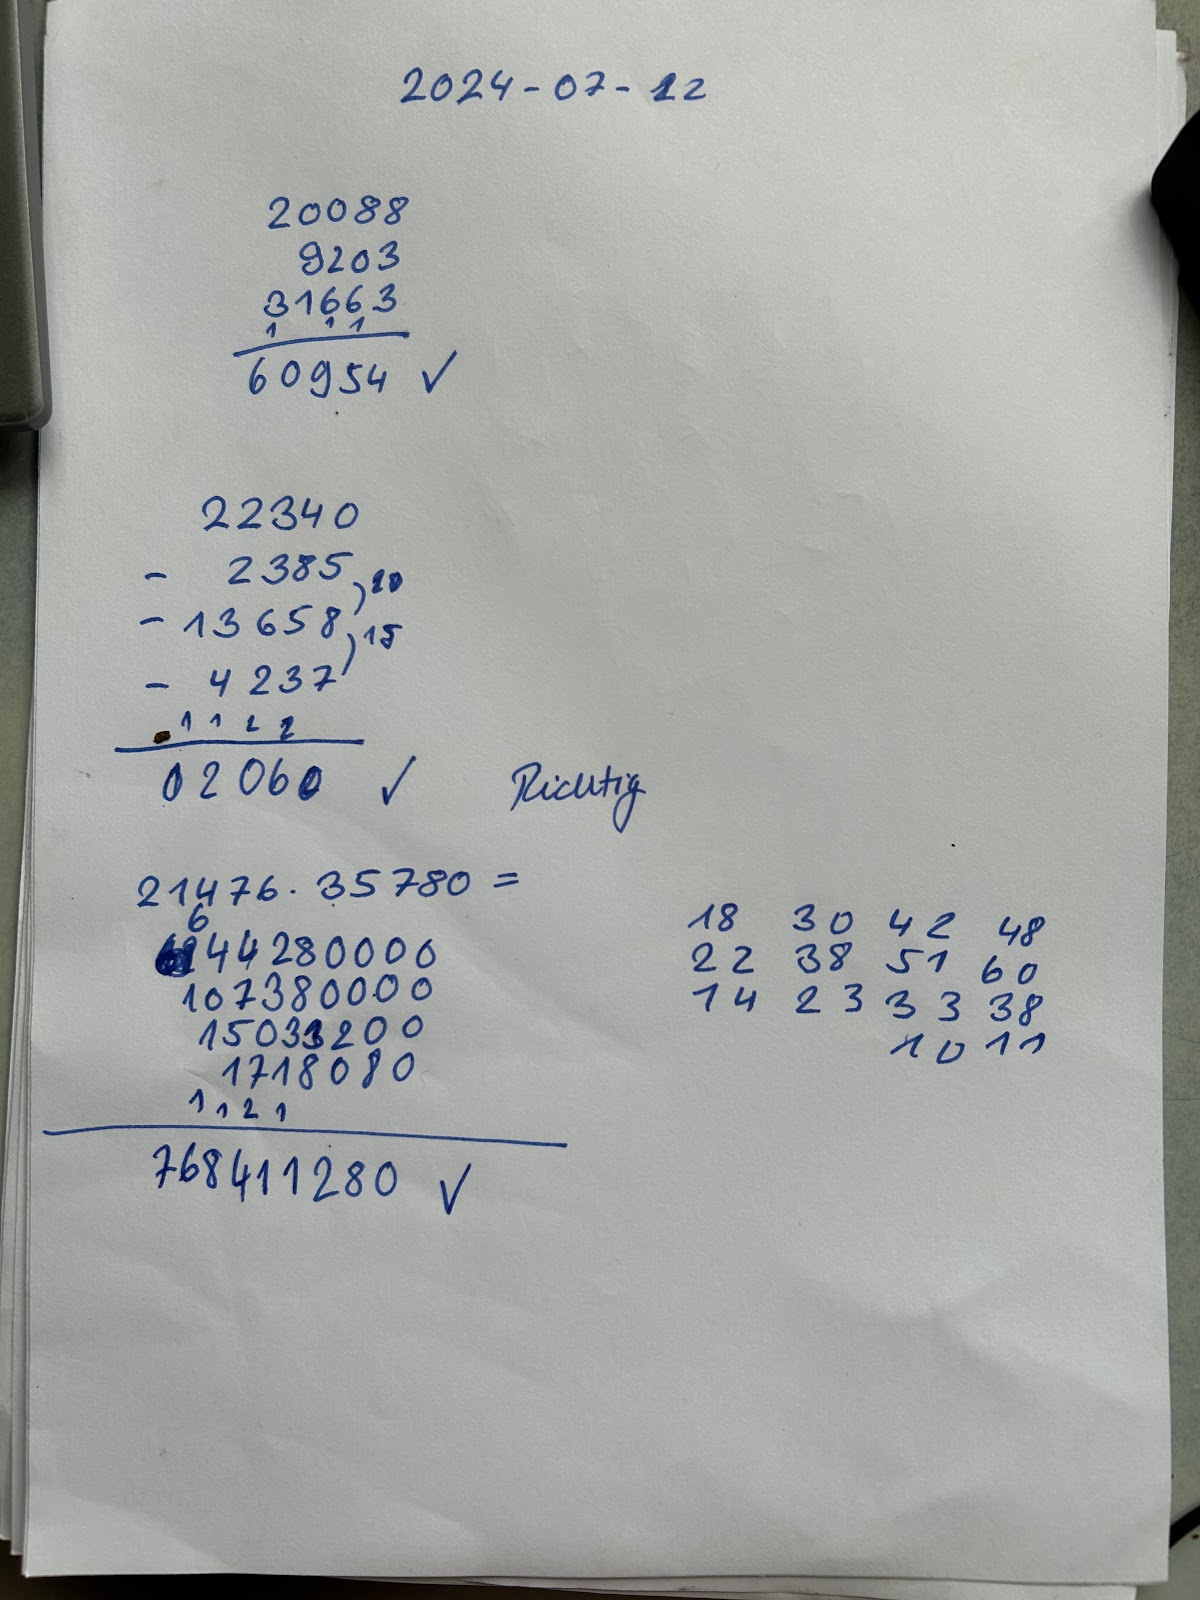 2024-07-12
20088
9203
31663
1 1 1
60954 ✓
22340
- 2385
)20
- 13658
)15
- 4237
1 1 2 2
02060 ✓ Richtig
21476 · 35780 =
6
44280000
107380000
15033200
1718080
1 1 2 1
768411280 ✓
18 30 42 48
22 38 51 60
14 23 33 38
10 11